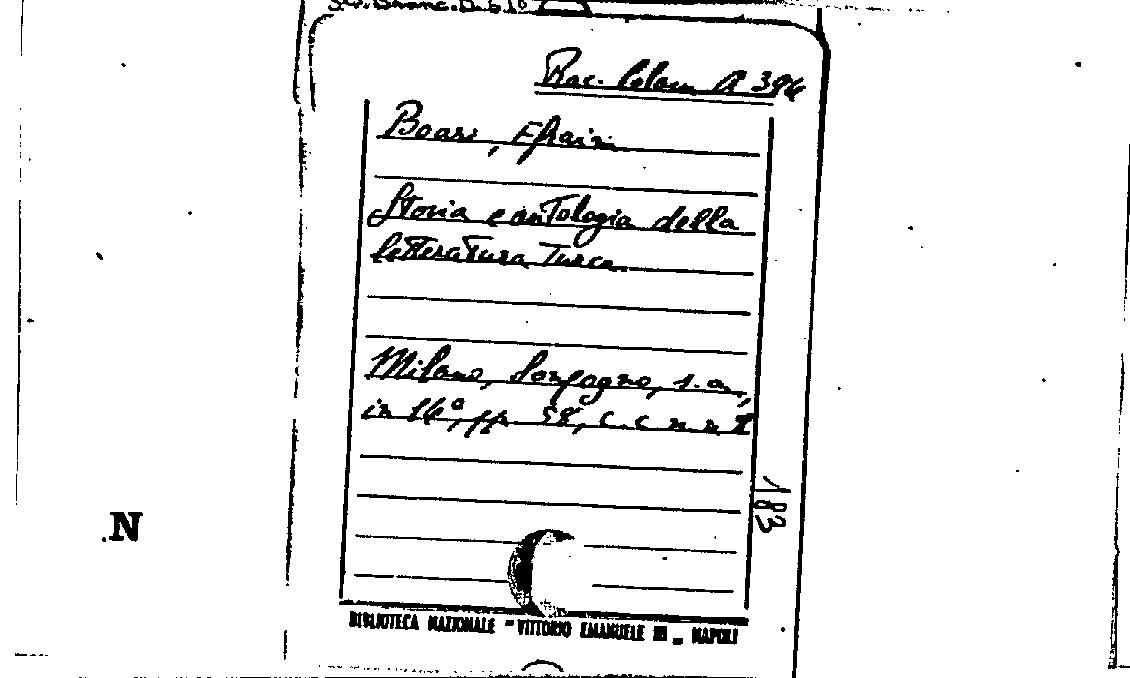 Rac. Colom A 394
Boari, Efraim
Storia e antologia della
letteratura Turca
Milano, Sonzogno, s.a.,
in 16°, pp. 58, c. c n. n 2
183
N
BIBLIOTECA NAZIONALE "VITTORIO EMANUELE III _ NAPOLI